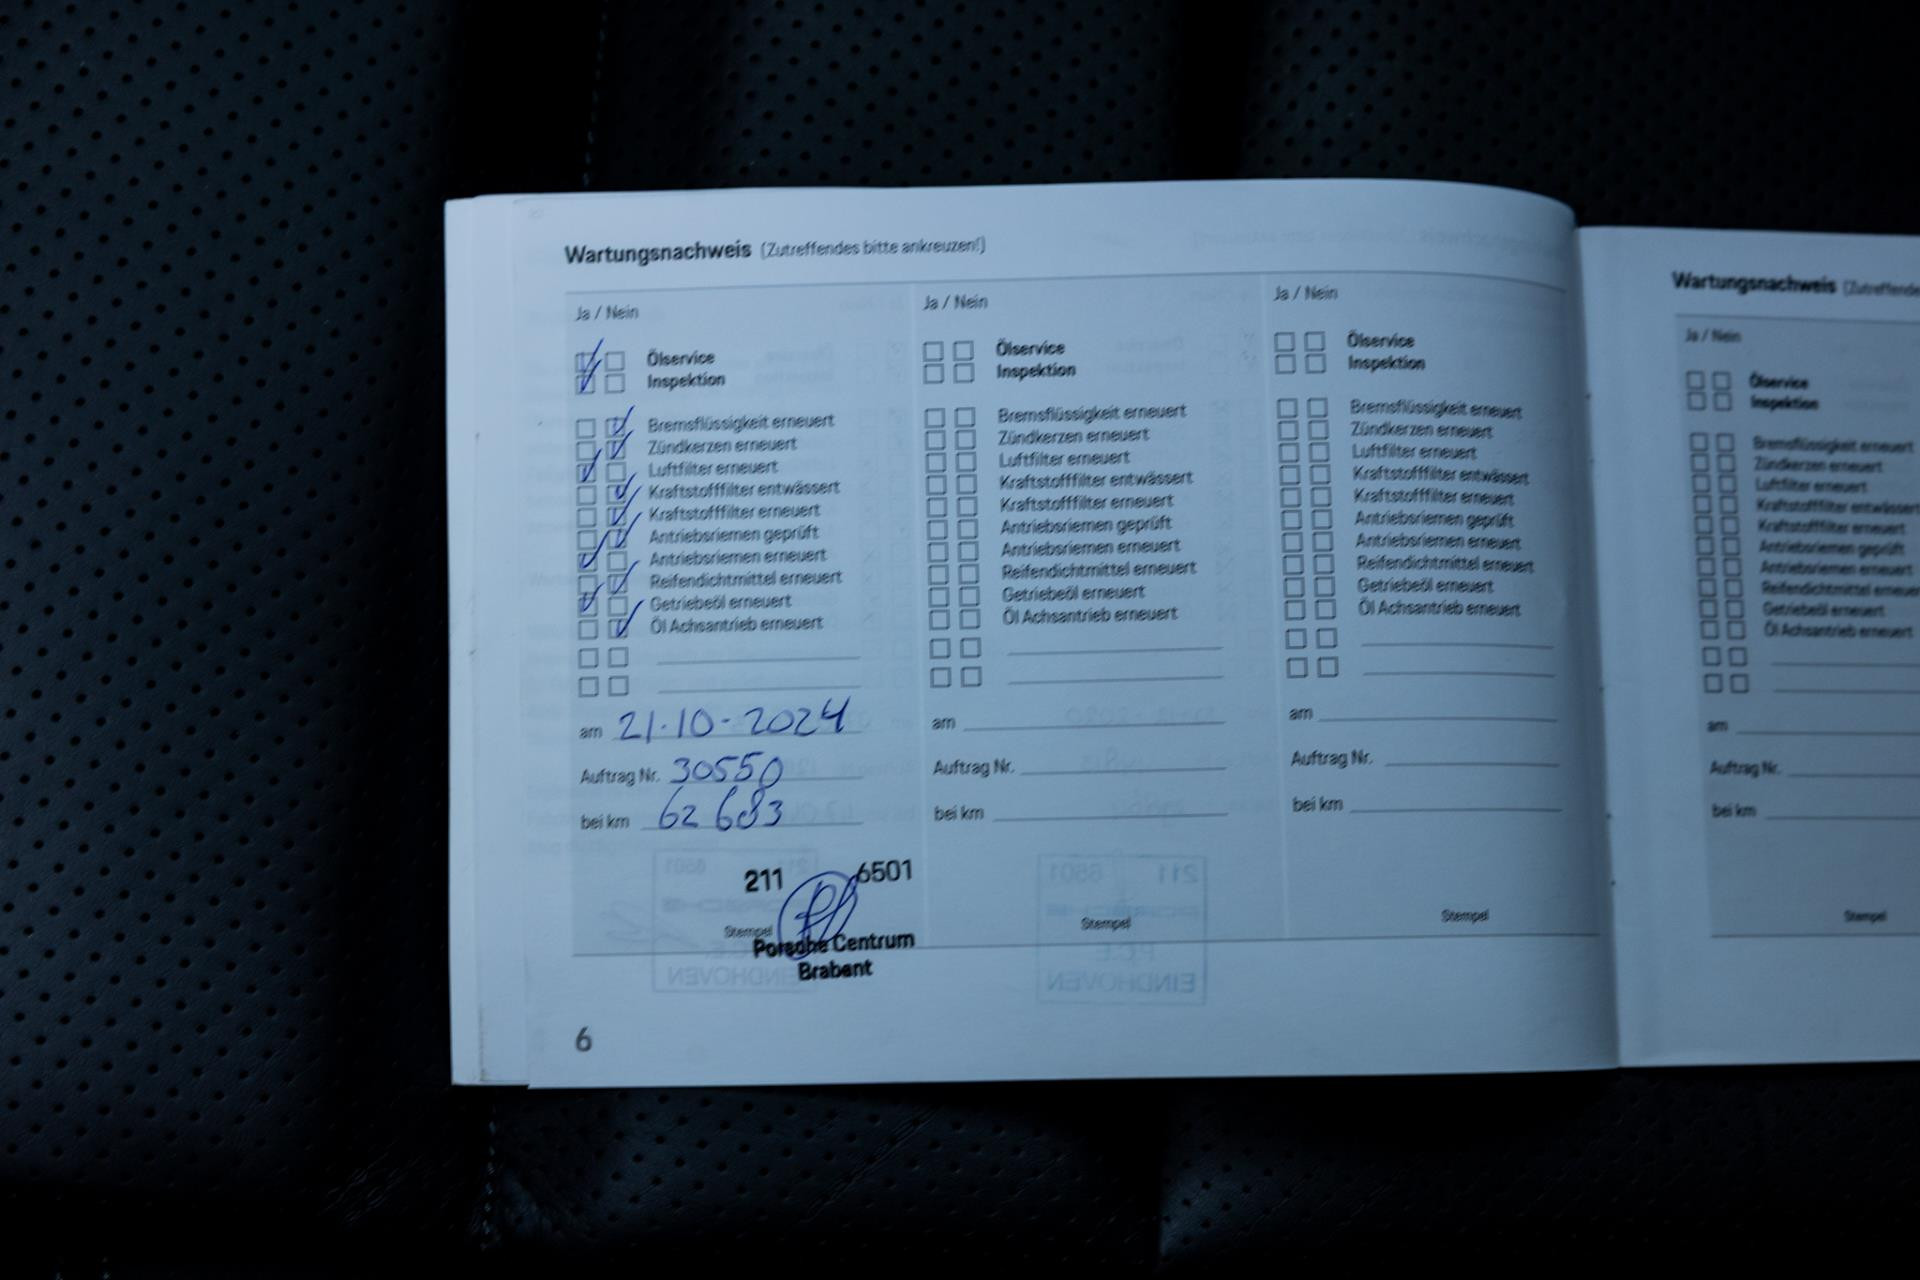 Wartungsnachweis (Zutreffendes bitte ankreuzen!)
Ja / Nein
Ölservice
Inspektion
Bremsflüssigkeit erneuert
Zündkerzen erneuert
Luftfilter erneuert
Kraftstofffilter entwässert
Kraftstofffilter erneuert
Antriebsriemen geprüft
Antriebsriemen erneuert
Reifendichtmittel erneuert
Getriebeöl erneuert
Öl Achsantrieb erneuert
am 21-10-2024
Auftrag Nr. 30550
bei km 62 683
211 6501
Stempel
Porsche Centrum
Brabant
6
Ja / Nein
Ölservice
Inspektion
Bremsflüssigkeit erneuert
Zündkerzen erneuert
Luftfilter erneuert
Kraftstofffilter entwässert
Kraftstofffilter erneuert
Antriebsriemen geprüft
Antriebsriemen erneuert
Reifendichtmittel erneuert
Getriebeöl erneuert
Öl Achsantrieb erneuert
am
Auftrag Nr.
bei km
Stempel
Ja / Nein
Ölservice
Inspektion
Bremsflüssigkeit erneuert
Zündkerzen erneuert
Luftfilter erneuert
Kraftstofffilter entwässert
Kraftstofffilter erneuert
Antriebsriemen geprüft
Antriebsriemen erneuert
Reifendichtmittel erneuert
Getriebeöl erneuert
Öl Achsantrieb erneuert
am
Auftrag Nr.
bei km
Stempel
Wartungsnachweis (Zutreffende
Ja / Nein
Ölservice
Inspektion
Bremsflüssigkeit erneuert
Zündkerzen erneuert
Luftfilter erneuert
Kraftstofffilter entwässert
Kraftstofffilter erneuert
Antriebsriemen geprüft
Antriebsriemen erneuert
Reifendichtmittel erneuer
Getriebeöl erneuert
Öl Achsantrieb erneuert
am
Auftrag Nr.
bei km
Stempel